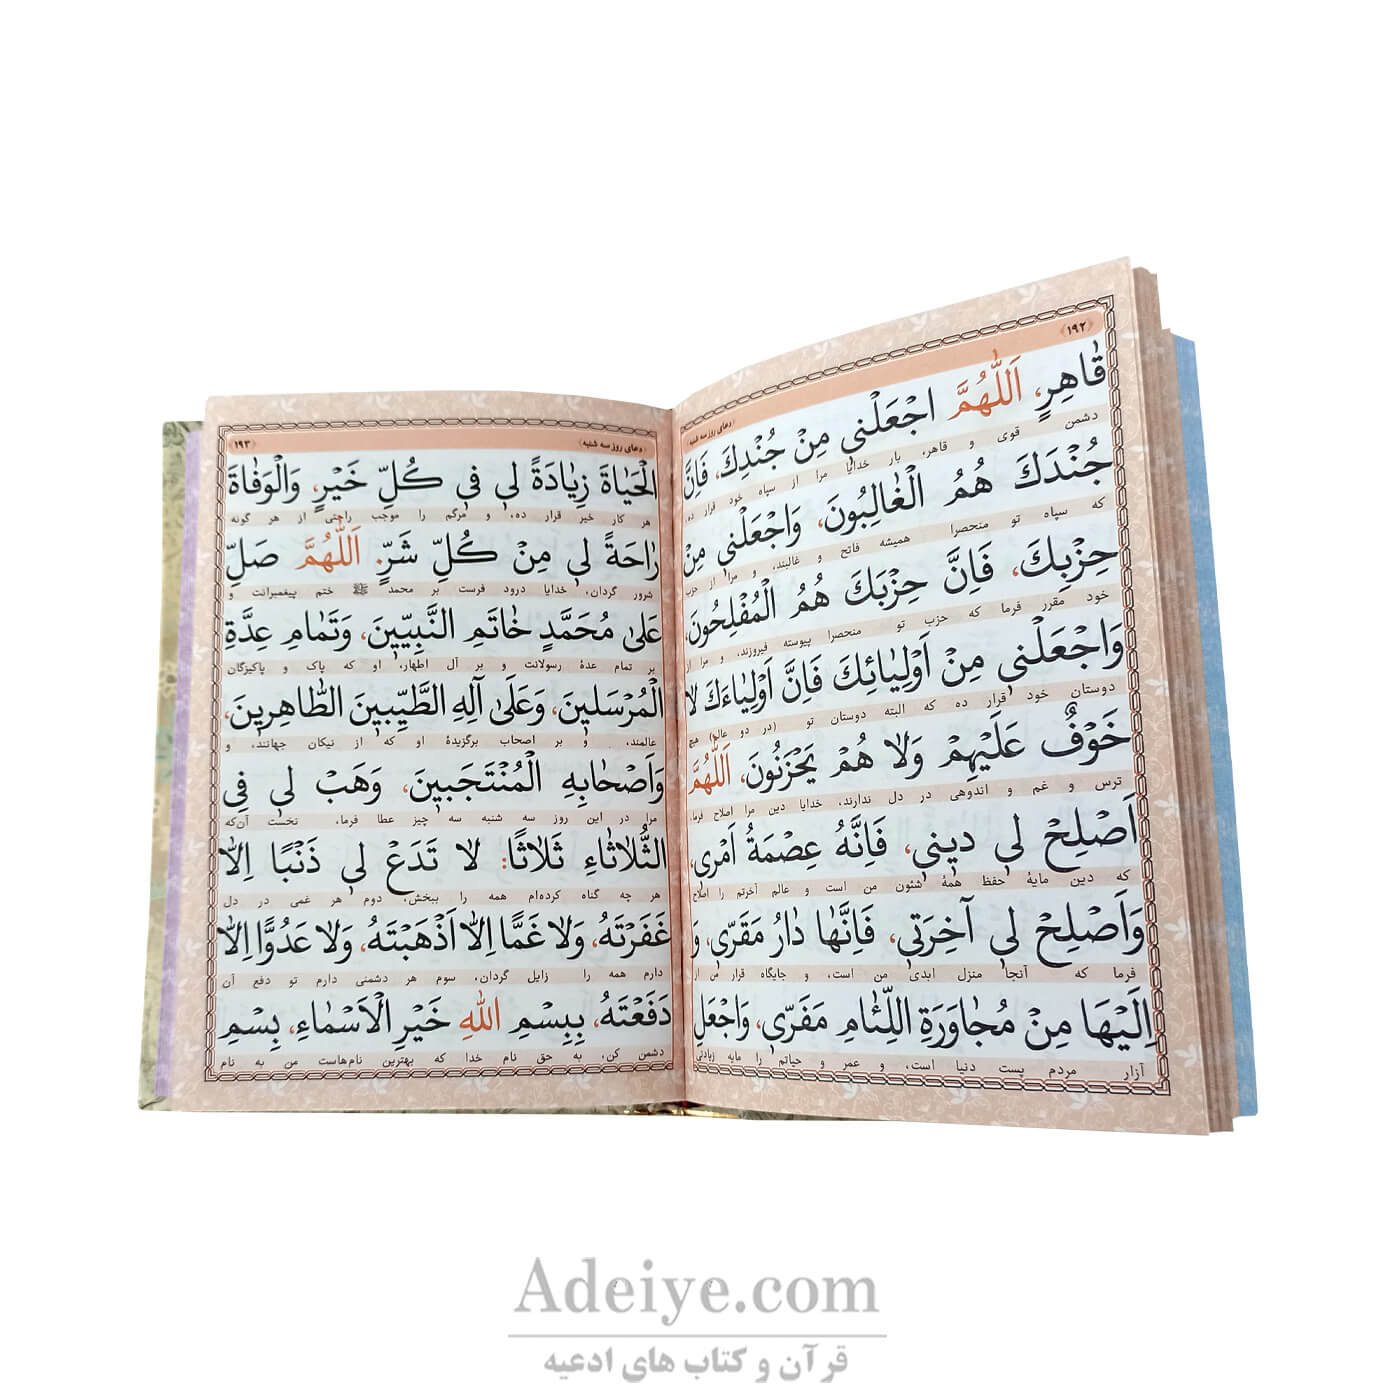 ﴿۱۹۲﴾
﴿دعای روز سه شنبه﴾
قٰاهِرٍ، اَللّٰهُمَّ اجْعَلْنی مِنْ جُنْدِكَ، فَاِنَّ
دشمن قوی و قاهر، بار خدایا مرا از سپاه خود قرار ده،
جُنْدَكَ هُمُ الْغٰالِبُونَ، وَاجْعَلْنی مِنْ
که سپاه تو منحصرا همیشه فاتح و غالبند، و مرا از حزب
حِزْبِكَ، فَاِنَّ حِزْبَكَ هُمُ الْمُفْلِحُونَ،
خود مقرر فرما که حزب تو منحصرا پیوسته فیروزند، و مرا از
وَاجْعَلْنی مِنْ اَوْلِیٰائِكَ فَاِنَّ اَوْلِیٰاءَكَ لا
دوستان خود قرار ده که البته دوستان تو (در دو عالم) هیچ
خَوْفٌ عَلَیْهِمْ وَلاٰ هُمْ یَحْزَنُونَ، اَللّٰهُمَّ
ترس و غم و اندوهی در دل ندارند، خدایا دین مرا اصلاح فرما،
اَصْلِحْ لی دینی، فَاِنَّهُ عِصْمَةُ اَمْری،
که دین مایهٔ حفظ همهٔ شئون من است و عالم آخرتم را اصلاح
وَاَصْلِحْ لی آخِرَتی، فَاِنَّهٰا دٰارُ مَقَرّی، وَ
فرما که آنجا منزل ابدی من است، و جایگاه فرار من از
اِلَیْهٰا مِنْ مُجٰاوَرَةِ اللِّئٰامِ مَفَرّی، وَاجْعَلِ
آزار مردم پست دنیا است، و عمر و حیاتم را مایه زیادتی
﴿دعای روز سه شنبه﴾
﴿۱۹۳﴾
الْحَیٰاةَ زِیٰادَةً لی فی كُلِّ خَیْرٍ، وَالْوَفٰاةَ
هر کار خیر قرار ده، و مرگم را موجب راحتی از هر گونه
رٰاحَةً لی مِنْ كُلِّ شَرٍّ. اَللّٰهُمَّ صَلِّ
شرور گردان، خدایا درود فرست بر محمد ﷺ ختم پیغمبرانت و
عَلیٰ مُحَمَّدٍ خٰاتَمِ النَّبِیّینَ، وَتَمٰامِ عِدَّةِ
بر تمام عدهٔ رسولانت و بر آل اطهار، او که پاک و پاکیزگان
الْمُرْسَلینَ، وَعَلیٰ آلِهِ الطَّیِّبینَ الطّٰاهِرینَ،
عالمند، و بر اصحاب برگزیدهٔ او که از نیکان جهانند، و
وَاَصْحٰابِهِ الْمُنْتَجَبینَ، وَهَبْ لی فِی
مرا در این روز سه شنبه سه چیز عطا فرما، نخست آن‌که
الثُّلاٰثٰاءِ ثَلاٰثًا: لا تَدَعْ لی ذَنْبًا اِلاّٰ
هر چه گناه کرده‌ام همه را ببخش، دوم هر غمی در دل
غَفَرْتَهُ، وَلاٰ غَمًّا اِلاّٰ اَذْهَبْتَهُ، وَلاٰ عَدُوًّا اِلاّٰ
دارم همه را زایل گردان، سوم هر دشمنی دارم تو دفع آن
دَفَعْتَهُ، بِبِسْمِ اللهِ خَیْرِ الْاَسْمٰاءِ، بِسْمِ
دشمن کن، به حق نام خدا که بهترین نام‌هاست من به نام
Adeiye.com
قرآن و کتاب های ادعیه